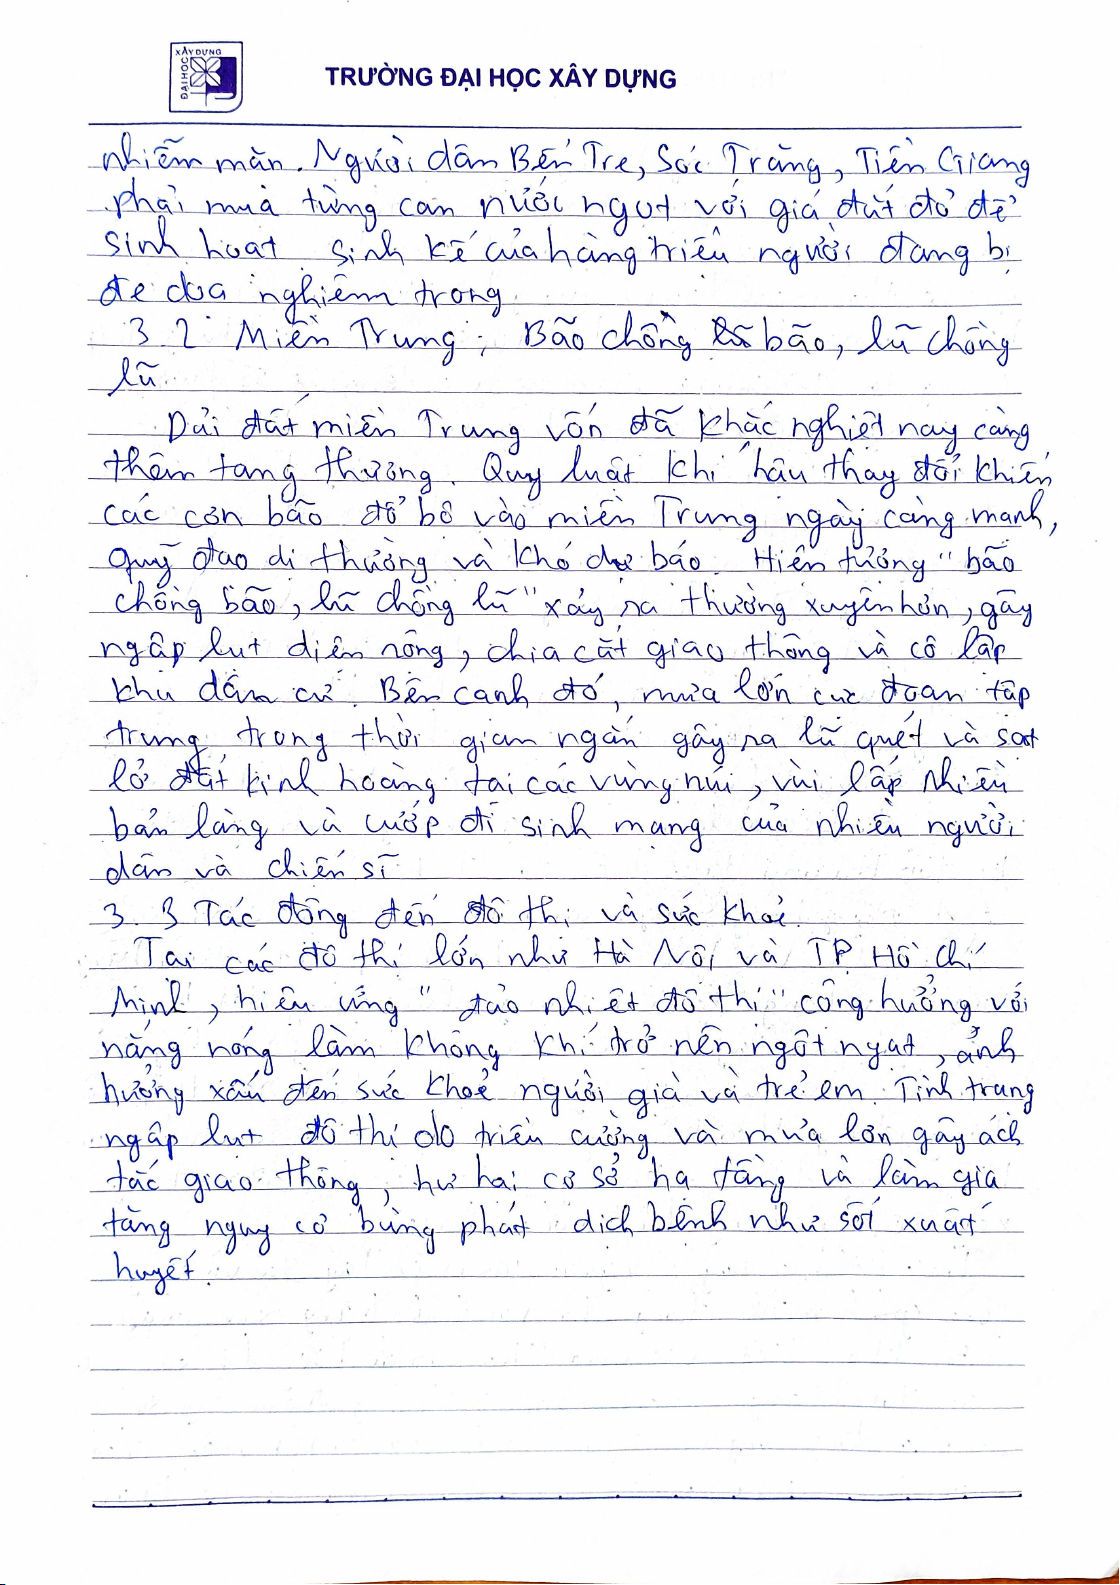 XÂY DỰNG
ĐẠI HỌC
TRƯỜNG ĐẠI HỌC XÂY DỰNG
nhiễm mặn. Người dân Bến Tre, Sóc Trăng, Tiền Giang
phải mua từng can nước ngọt với giá đắt đỏ để
sinh hoạt. Sinh kế của hàng triệu người đang bị
đe dọa nghiêm trọng
3.2 Miền Trung: Bão chồng bão, lũ chồng
lũ.
Dải đất miền Trung vốn đã khắc nghiệt nay càng
thêm tang thương. Quy luật khí hậu thay đổi khiến
các cơn bão đổ bộ vào miền Trung ngày càng mạnh,
quỹ đạo dị thường và khó dự báo. Hiện tượng "bão
chồng bão, lũ chồng lũ" xảy ra thường xuyên hơn, gây
ngập lụt diện rộng, chia cắt giao thông và cô lập
khu dân cư. Bên cạnh đó, mưa lớn cực đoan tập
trung trong thời gian ngắn gây ra lũ quét và sạt
lở đất kinh hoàng tại các vùng núi, vùi lấp nhiều
bản làng và cướp đi sinh mạng của nhiều người
dân và chiến sĩ
3.3 Tác động đến đô thị và sức khoẻ.
Tại các đô thị lớn như Hà Nội và TP Hồ Chí
Minh, hiệu ứng "đảo nhiệt đô thị" cộng hưởng với
nắng nóng làm không khí trở nên ngột ngạt, ảnh
hưởng xấu đến sức khoẻ người già và trẻ em. Tình trạng
ngập lụt đô thị do triều cường và mưa lớn gây ách
tắc giao thông, hư hại cơ sở hạ tầng và làm gia
tăng nguy cơ bùng phát dịch bệnh như sốt xuất
huyết.